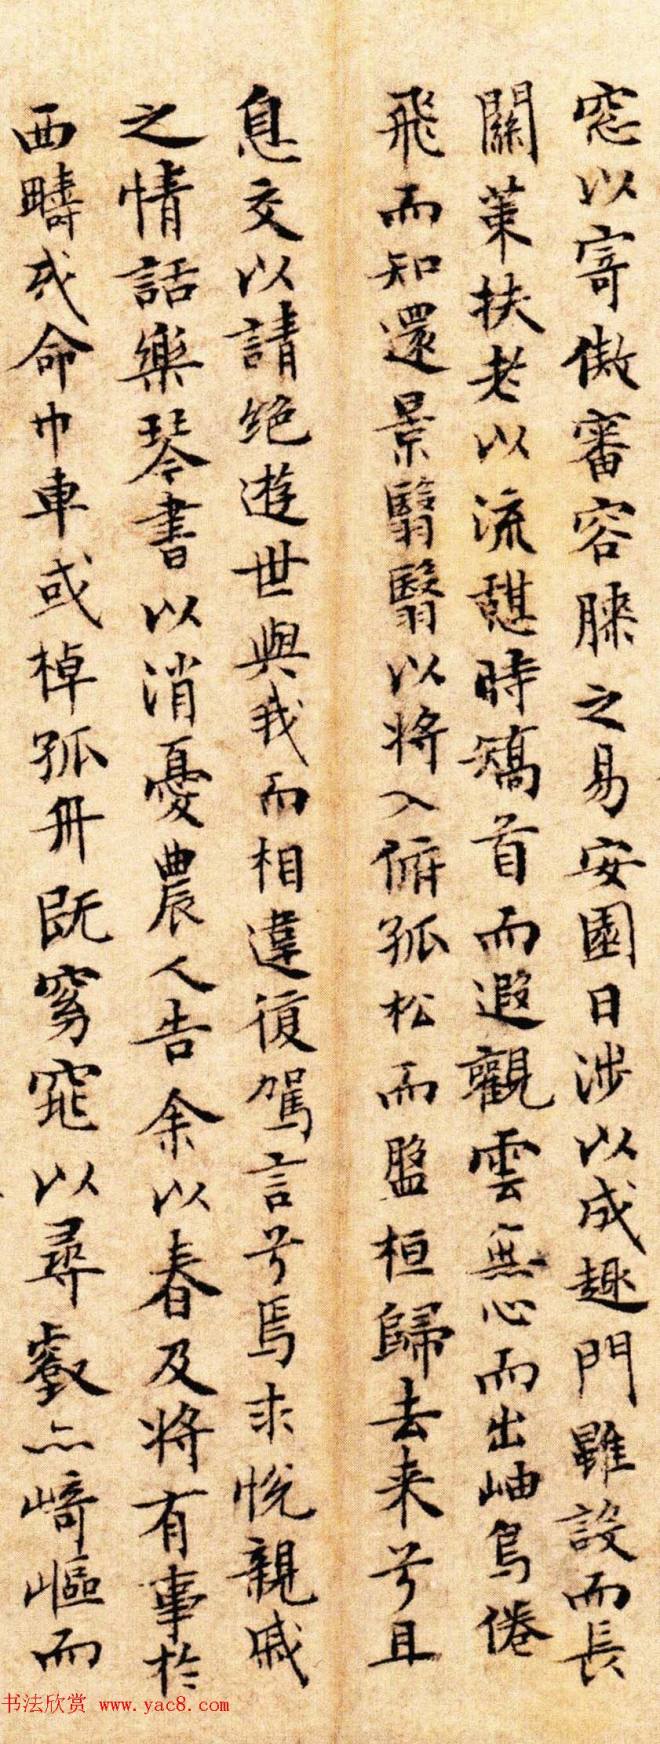 窓以寄傲審容膝之易安園日涉以成趣門雖設而長
關策扶老以流憩時矯首而遐觀雲無心而出岫鳥倦
飛而知還景翳翳以將入俯孤松而盤桓歸去来兮且
息交以請絕遊世與我而相違復駕言兮焉求悅親戚
之情話樂琴書以消憂農人告余以春及將有事於
西疇或命巾車或棹孤舟既窈窕以尋壑亦崎嶇而
书法欣赏 www.yac8.com